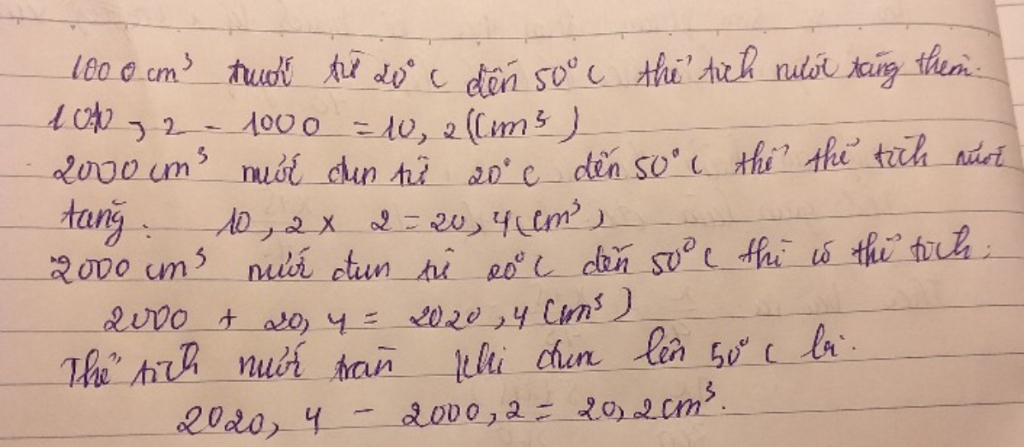 1000 cm³ nước từ 20°C đến 50°C thể tích nước tăng thêm.
1010,2 - 1000 = 10,2 (cm³)
2000 cm³ nước đun từ 20°C đến 50°C thể thể tích nước
tăng. 10,2 x 2 = 20,4 (cm³)
2000 cm³ nước đun từ 20°C đến 50°C thì có thể tích:
2000 + 20,4 = 2020,4 (cm³)
Thể tích nước tràn khi đun lên 50°C là.
2020,4 - 2000,2 = 20,2 cm³.